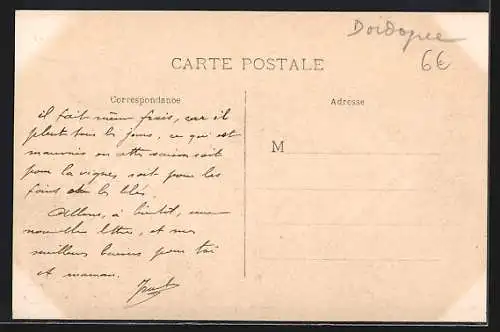 Doidogne
6€
CARTE POSTALE
Correspondance
Adresse
il fait même frais, car il
pleut tous les jours, ce qui est
mauvais en cette saison soit
pour la vignes soit pour les
foins et les blés.
Allons, à bientôt, une
nouvelle lettre, et mes
meilleurs baisers pour toi
et maman.
M